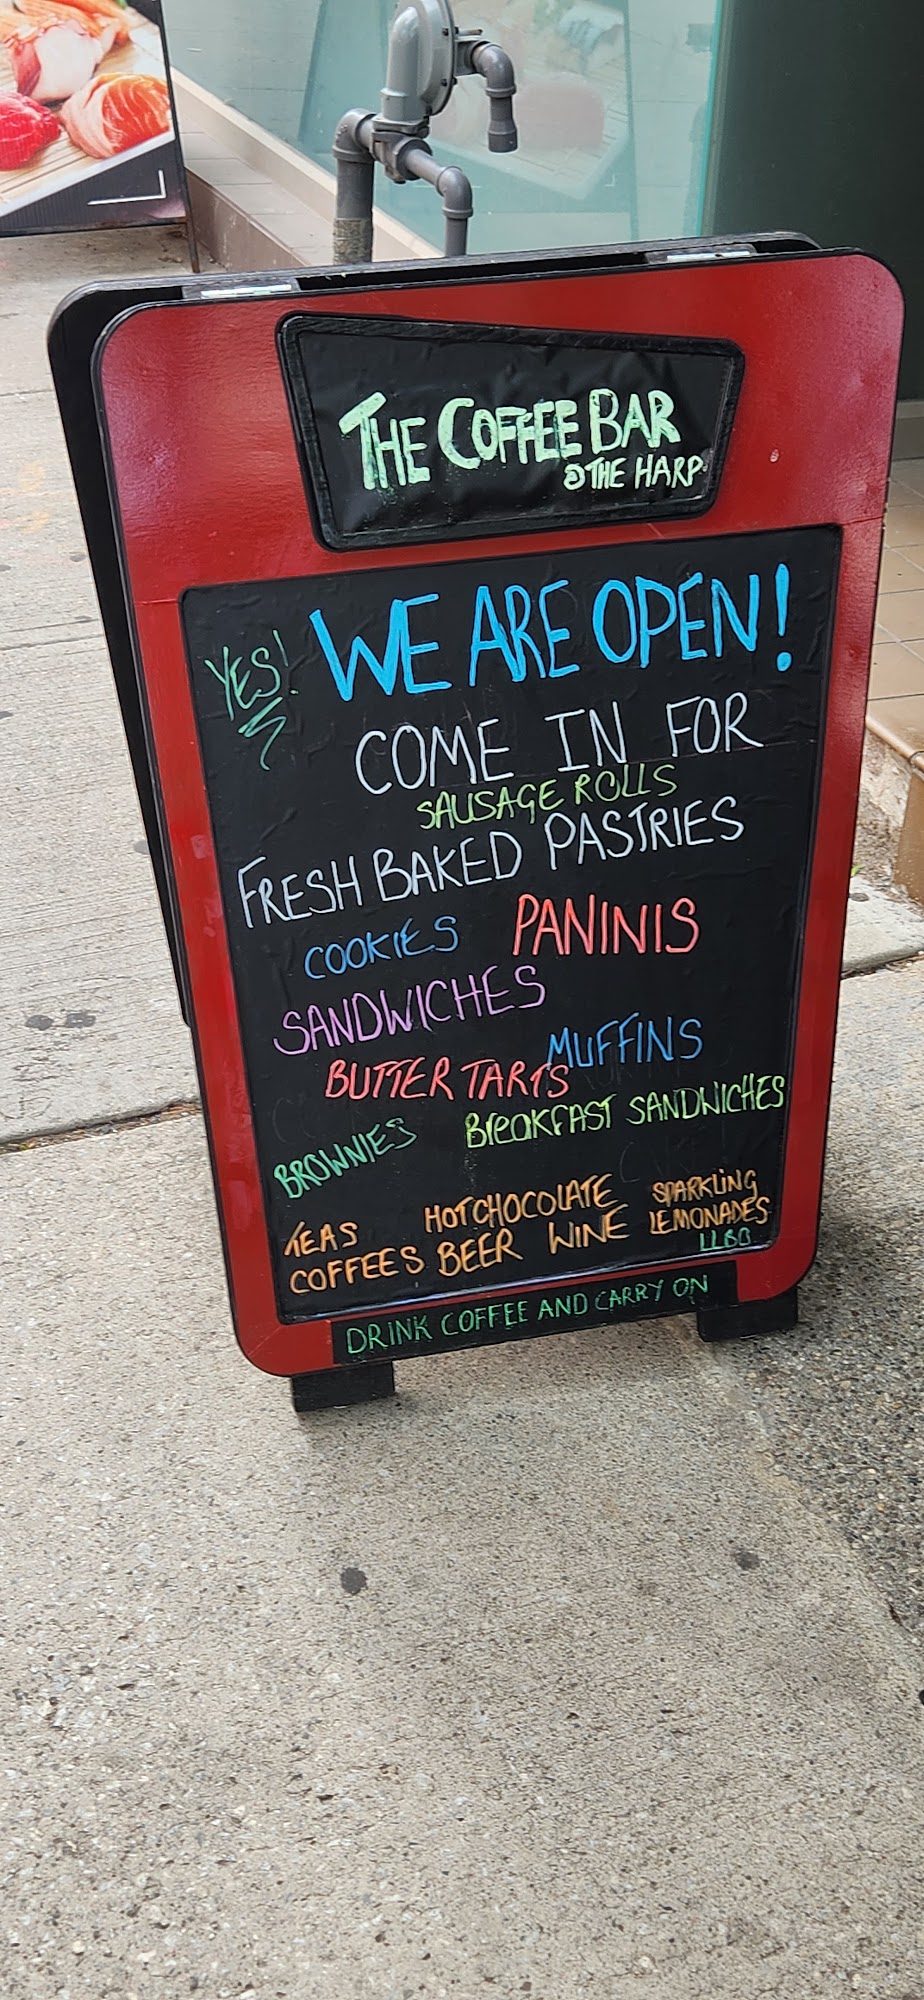 THE COFFEE BAR
@ THE HARP
YES! WE ARE OPEN!
COME IN FOR
SAUSAGE ROLLS
FRESH BAKED PASTRIES
COOKIES PANINIS
SANDWICHES
MUFFINS
BUTTER TARTS
BROWNIES BREAKFAST SANDWICHES
TEAS HOT CHOCOLATE SPARKLING
LEMONADES
COFFEES BEER WINE
LLBO
DRINK COFFEE AND CARRY ON